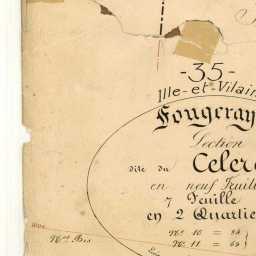 -35-
Ille-et-Vilain
Fougeray
Section
dite du Celer
en neuf Feuill
7 Feuille
en 2 Quartie
Nº 10 = 84
Nº 11 = 64
Nos Bis